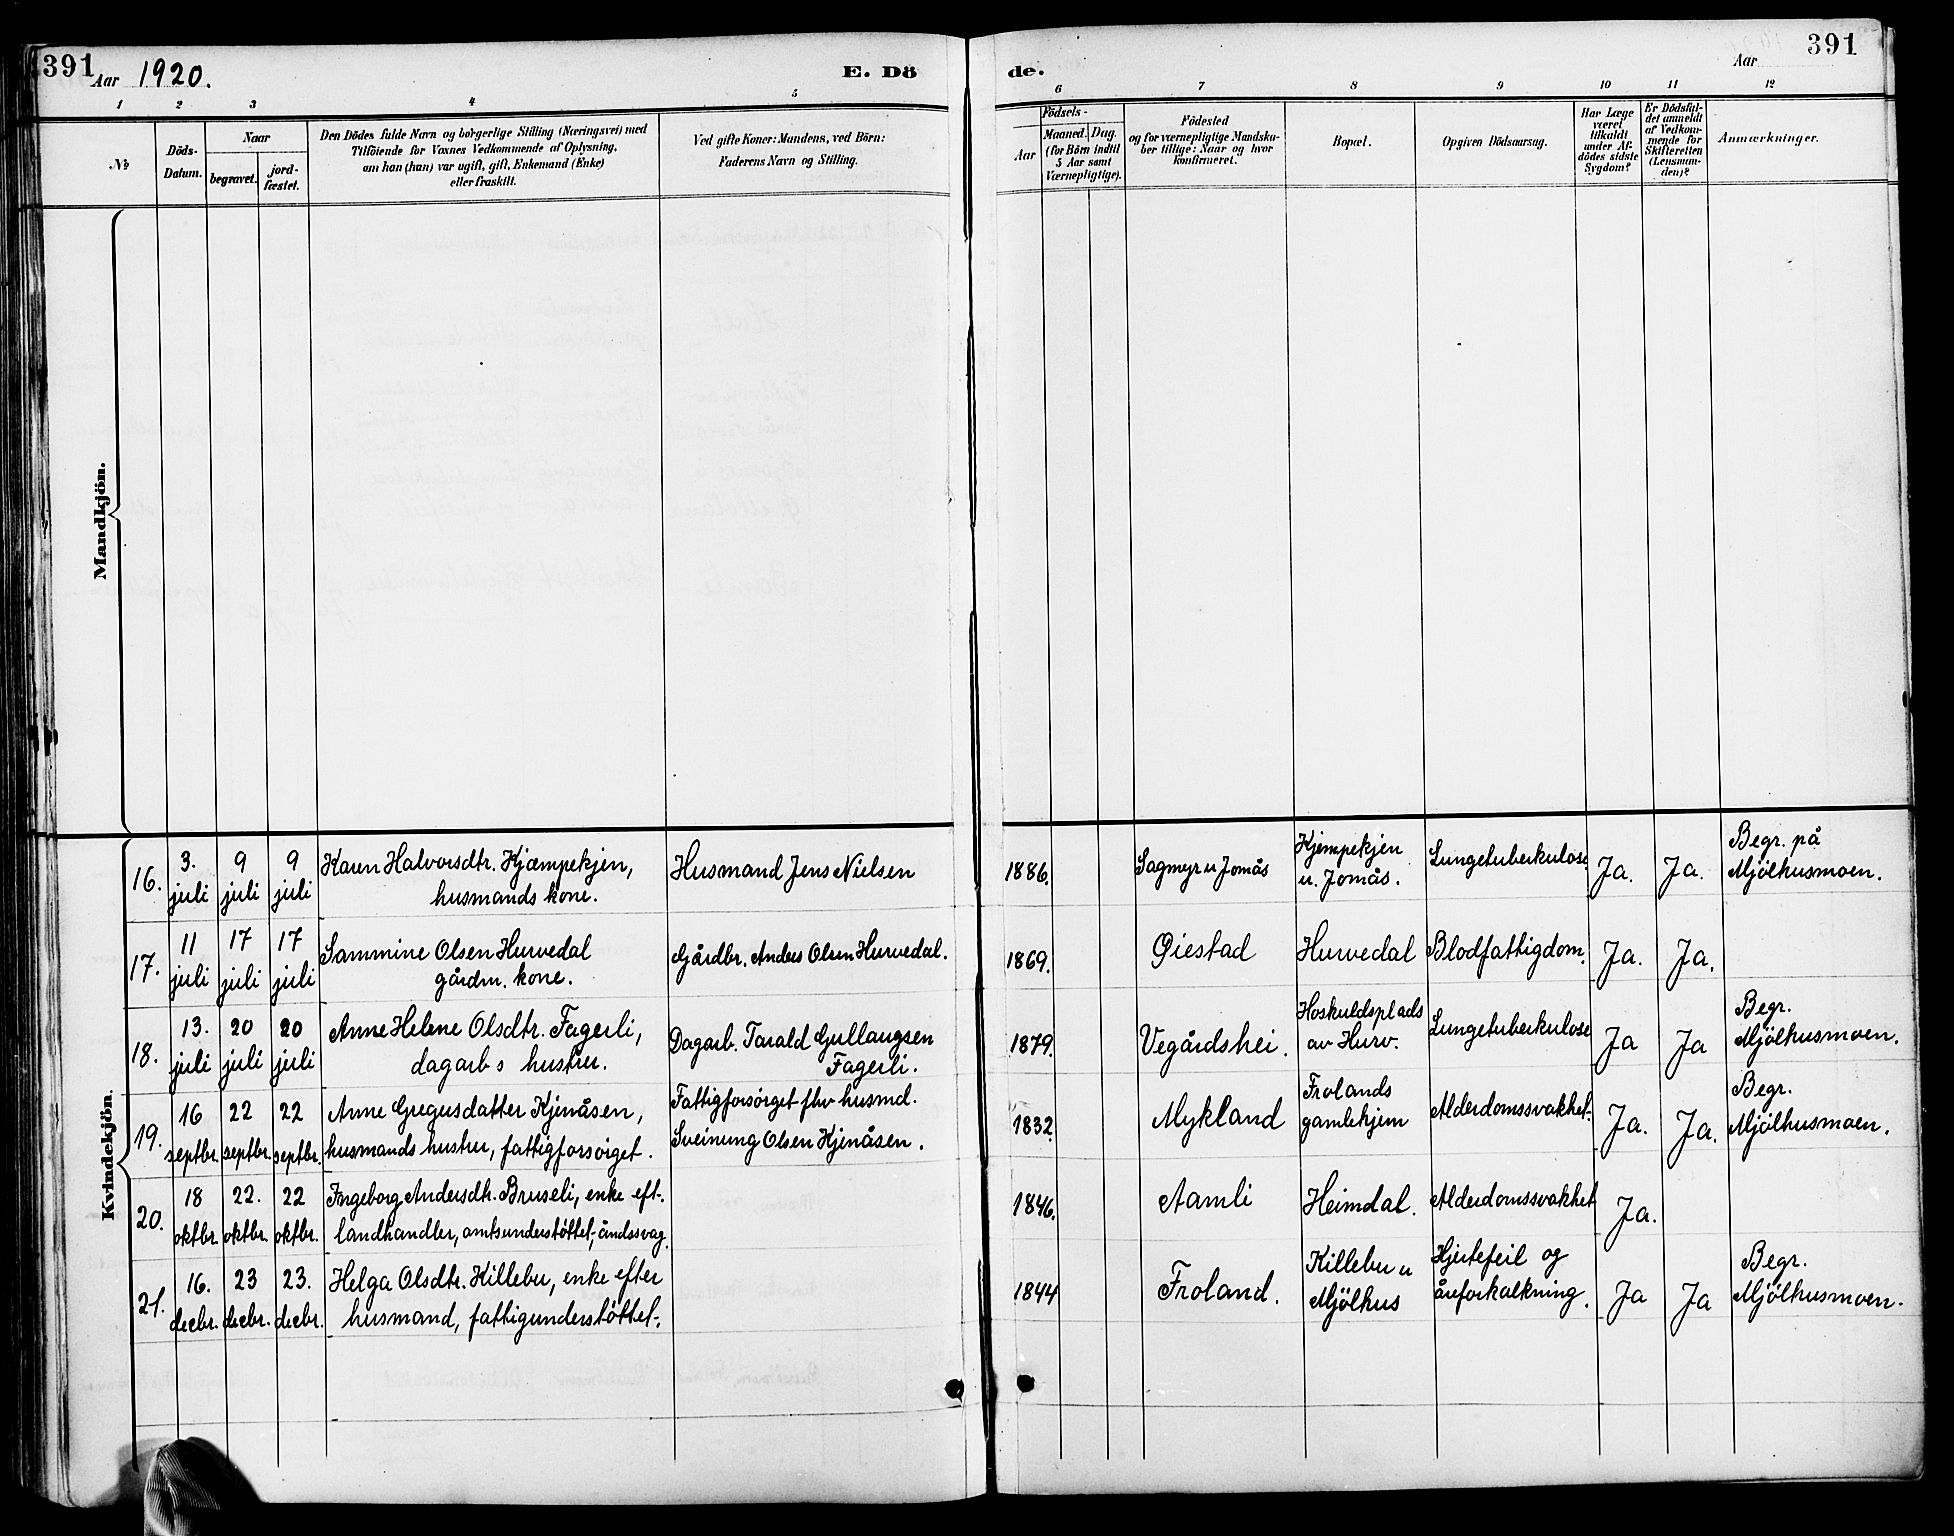 391
Aar 1920.
E. Dö
de.
Aar
391
1
2
3
4
5
6
7
8
9
10
11
12
No
Döds-
Datum.
Naar
begravet.
jord-
fæstet.
Den Dödes fulde Navn og borgerlige Stilling (Næringsvei) med
Tilföiende for Voxnes Vedkommende af Oplysning,
om han (hun) var ugift, gift, Enkemand (Enke)
eller fraskilt.
Ved gifte Koner: Mandens, ved Börn:
Faderens Navn og Stilling.
Födsels-
Aar
Maaned. Dag.
(for Börn indtil
5 Aar samt
Værnepligtige).
Födested
og for værnepligtige Mandska-
ber tillige: Naar og hvor
konfirmeret.
Bopæl.
Opgiven Dödsaarsag.
Har Læge
været
tilkaldt
under Af-
dödes sidste
Sygdom?
Er Dödsfal-
det anmeldt
af Vedkom-
mende for
Skifteretten
(Lensman-
den)?
Anmærkninger.
Mandkjön.
Kvindekjön.
16.
3.
juli
9
juli
9
juli
Karen Halvorsdtr. Kjæmpekjen,
husmands kone.
Husmand Jens Nielsen
1886.
Sagmyr u Jomås
Kjempekjen
u. Jomås.
Lungetuberkulose.
Ja.
Ja.
Begr. på
Mjölhusmoen.
17.
11
juli
17
juli
17
juli
Sammine Olsen Hurvedal
gårdm. kone.
Gårdbr. Anders Olsen Hurvedal.
1869.
Øiestad
Hurvedal
Blodfattigdom.
Ja.
Ja.
18.
13.
juli
20
juli
20
juli
Anne Helene Olsdtr. Fagerli,
dagarb s hustru.
Dagarb. Tarald Gullaugsen
Fagerli.
1879.
Vegårdshei.
Hoskuldsplads
av Hurv.
Lungetuberkulose
Ja
Ja
Begr.
Mjölhusmoen.
19.
16
septbr.
22
septbr.
22
septbr.
Anne Gregusdatter Kjenåsen,
husmands hustru, fattigforsörget.
Fattigforsörget fhv husmd.
Sveinung Olsen Kjenåsen.
1832.
Mykland
Frolands
gamlehjem
Alderdomssvakhet.
Ja.
Ja.
Begr.
Mjölhusmoen.
20.
18
oktbr.
22.
oktbr.
22
oktbr.
Ingeborg Andersdtr. Bruseli, enke eft.
landhandler, amtsunderstöttet, åndssvag.
1846.
Aamli
Heimdal.
Alderdomssvakhet
Ja.
21.
16.
decbr.
23
decbr.
23.
decbr.
Helga Olsdtr. Killebu, enke efter
husmand, fattigunderstöttet.
1844
Froland.
Killebu u
Mjölhus
Hjertefeil og
åreforkalkning.
Ja
Ja
Begr.
Mjölhusmoen.